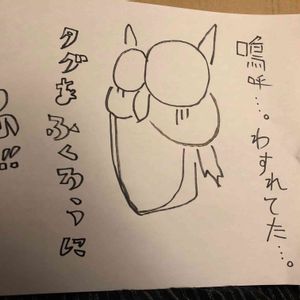 嗚呼…。わすれてた…。
タグをふくろうに